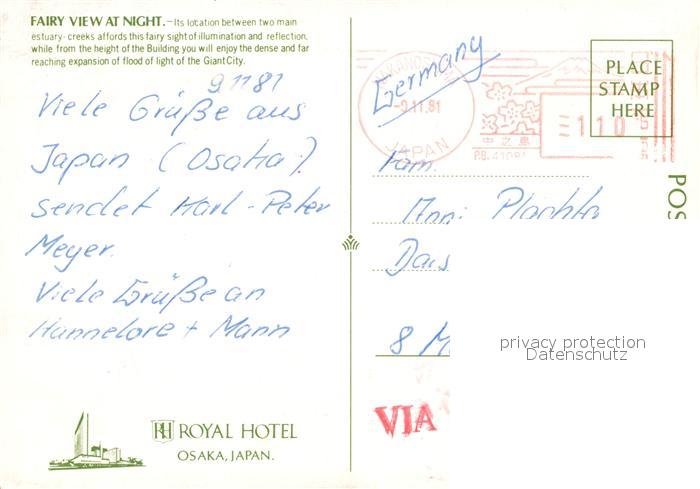 FAIRY VIEW AT NIGHT.–Its location between two main
estuary-creeks affords this fairy sight of illumination and reflection,
while from the height of the Building you will enjoy the dense and far
reaching expansion of flood of light of the Giant City.
91181
Viele Grüße aus
Japan (Osaka).
sendet Karl-Peter
Meyer.
Viele Grüße an
Hannelore + Mann
RH ROYAL HOTEL
OSAKA, JAPAN.
Germany
-9.11.81
JAPAN
中之島
110
PLACE
STAMP
HERE
POS
Fam.
Plachta
8 M
privacy protection
Datenschutz
VIA